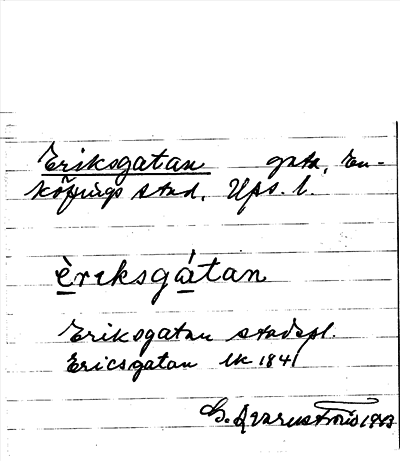 Eriksgatan gata, En-
köpings stad, Ups. l.
èriksgátan
Eriksgatan stadspl.
Ericsgatan LK 1841